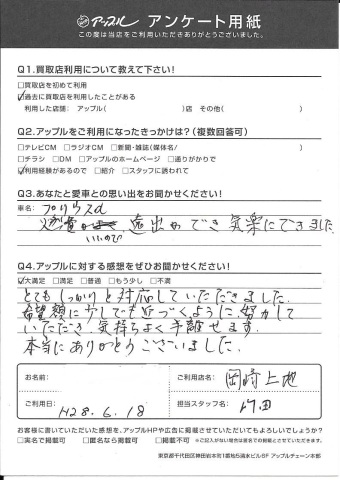 アップル アンケート用紙
この度は当店をご利用いただきありがとうございました。
Q1.買取店利用について教えて下さい!
□買取店を初めて利用
☑過去に買取店を利用したことがある
利用した店舗: アップル( )店 その他( )
Q2.アップルをご利用になったきっかけは?(複数回答可)
□テレビCM □ラジオCM □新聞・雑誌(媒体名/ )
□チラシ □DM □アップルのホームページ □通りがかりで
☑利用経験があるので □紹介 □スタッフに誘われて
Q3.あなたと愛車との思い出をお聞かせください!
車名: プリウスα
燃費が いいので 遠出ができ気楽にできました
Q4.アップルに対する感想をぜひお聞かせください!
☑大満足 □満足 □普通 □もう少し □不満
とてもしっかりと対応していただきました。
希望額に少しでも近づくように努力して
いただき、気持ちよく手離せます。
本当にありがとうございました。
お名前:
ご利用店名: 岡崎上地
ご利用日: H28.6.18
担当スタッフ名: 竹田
お客様に書いていただいた感想を、アップルHPや広告に掲載させていただいてもよろしいでしょうか?
□実名で掲載可 □匿名なら掲載可 □掲載不可 ※ご記入がない場合は匿名での掲載とさせていただきます。
東京都千代田区神田岩本町1番地5清水ビル6F アップルチェーン本部